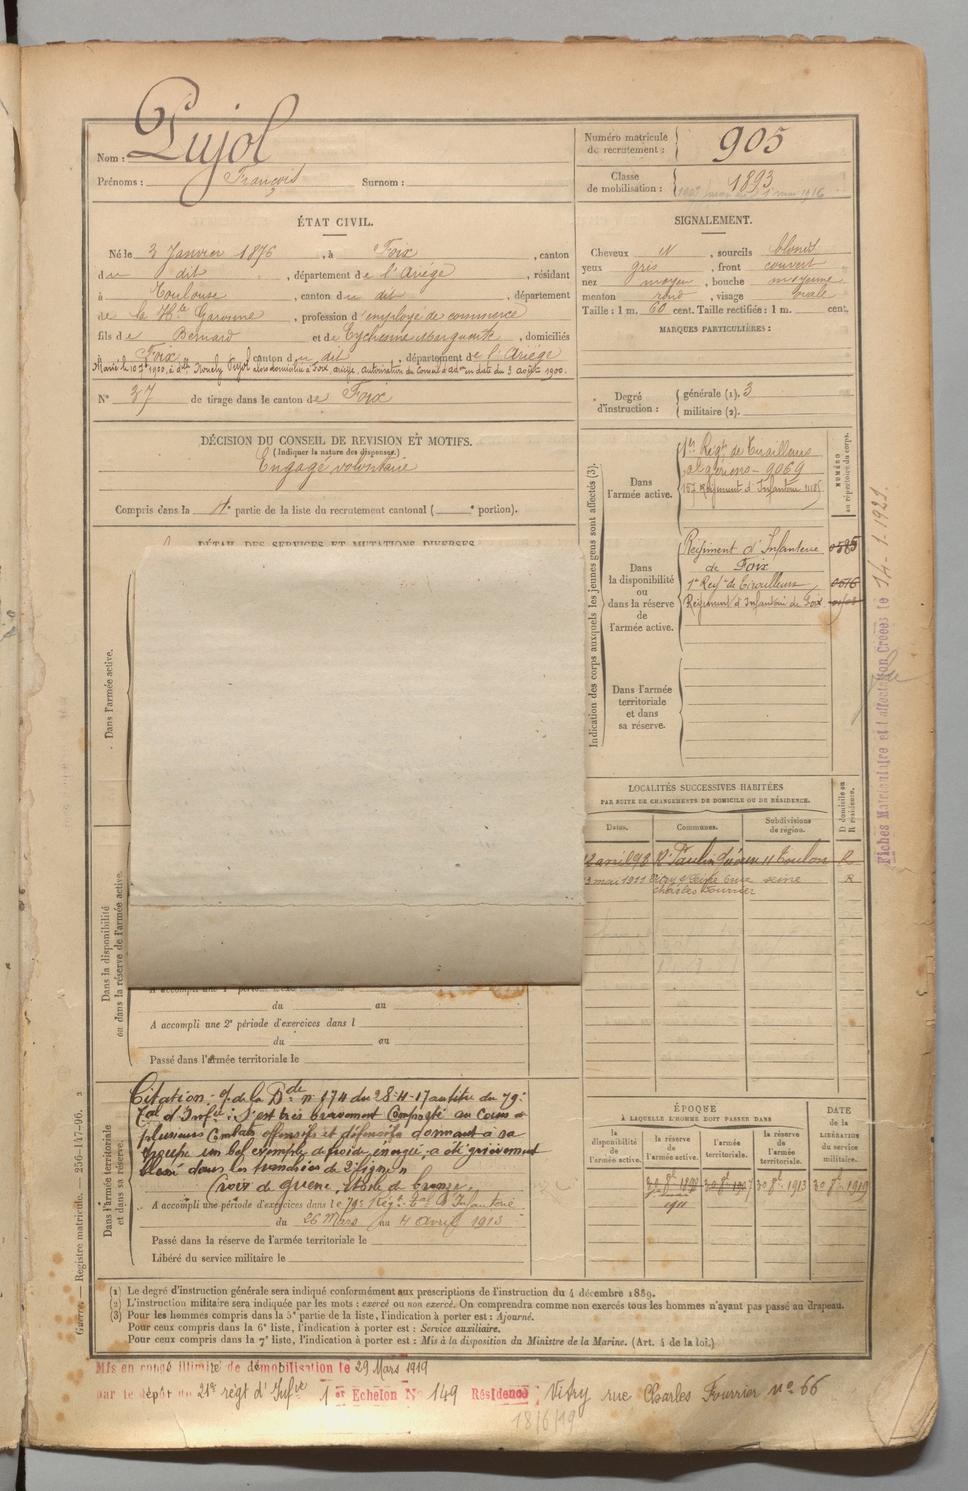 Nom : Pujol
Prénoms : François Surnom :
Numéro matricule de recrutement : 905
Classe de mobilisation : 1893
ÉTAT CIVIL.
Né le 3 Janvier 1876, à Foix, canton
du dit, département de l'Ariége, résidant
à Toulouse, canton du dit, département
de la Hte Garonne, profession d'employé de commerce
fils de Bernard et de Marguerite, domiciliés
à Foix canton du dit, département de l'Ariége
Pujol domiciliée à Foix, ariège, autorisation du Conseil d'adon en date du 3 août 1900.
N° 37 de tirage dans le canton de Foix
SIGNALEMENT.
Cheveux N, sourcils blonds
yeux gris, front couvert
nez moyen, bouche moyenne
menton rond, visage ovale
Taille : 1 m. 60 cent. Taille rectifiée : 1 m. cent.
MARQUES PARTICULIÈRES :
Degré d'instruction : générale (1). 3
militaire (2).
DÉCISION DU CONSEIL DE REVISION ET MOTIFS.
(Indiquer la nature des dispenses.)
Engagé volontaire
Compris dans la 4e partie de la liste du recrutement cantonal ( e portion).
DÉTAIL DES SERVICES ET MUTATIONS DIVERSES
Indication des corps auxquels les jeunes gens sont affectés (3).
NUMÉRO au répertoire du corps.
Dans l'armée active.
1er Régt de Tirailleurs
algériens - 9069
Régiment d'Infanterie
Dans la disponibilité ou dans la réserve de l'armée active.
Régiment d'Infanterie
de Foix
1er Regt de Tirailleurs
Régiment d'Infanterie de Foix
Dans l'armée territoriale et dans sa réserve.
Fiches Matriculaire et d'affectation Créées le 14-1-1921.
Dans l'armée active.
Dans la disponibilité ou dans la réserve de l'armée active.
LOCALITÉS SUCCESSIVES HABITÉES
PAR SUITE DE CHANGEMENTS DE DOMICILE OU DE RÉSIDENCE.
Dates. Communes. Subdivisions de région. D domicile ou R résidence.
avril 98 Toulon R
3 mai 1911 Vitry s/ Seine rue Seine R
Charles Fourrier
du au
A accompli une 2e période d'exercices dans l
du au
Passé dans l'armée territoriale le
Dans l'armée territoriale et dans sa réserve.
Citation : de la Bde n° 174 du 28-4-17 au titre du 79e
Tal d'Infie : S'est très bravement comporté au Cours de
plusieurs Combats offensifs et défensifs donnant à sa
troupe un bel exemple de froide énergie, a été grièvement
blessé dans les tranchées de
Croix de guerre, étoile de bronze.
A accompli une période d'exercices dans le 79e Régt Tal d'Infanterie
du 26 Mars au 4 avril 1913
Passé dans la réserve de l'armée territoriale le
Libéré du service militaire le
ÉPOQUE
À LAQUELLE L'HOMME DOIT PASSER DANS
DATE DE LA LIBÉRATION du service militaire.
la disponibilité de l'armée active. la réserve de l'armée active. l'armée territoriale. la réserve de l'armée territoriale.
30 8bre 1913 30 8bre 1919
1911
(1) Le degré d'instruction générale sera indiqué conformément aux prescriptions de l'instruction du 4 décembre 1889.
(2) L'instruction militaire sera indiquée par les mots : exercé ou non exercé. On comprendra comme non exercés tous les hommes n'ayant pas passé au drapeau.
(3) Pour les hommes compris dans la 5e partie de la liste, l'indication à porter est : Ajourné.
Pour ceux compris dans la 6e liste, l'indication à porter est : Service auxiliaire.
Pour ceux compris dans la 7e liste, l'indication à porter est : Mis à la disposition du Ministre de la Marine. (Art. 4 de la loi.)
Guerre. — Registre matricule. — 256-147-96. 2
Mis en congé illimité de démobilisation le 29 Mars 1919
par le dépôt du 21e régt d'Infie 1er Echelon N° 149 Résidence : Vitry rue Charles Fourrier n° 66
18/6/19